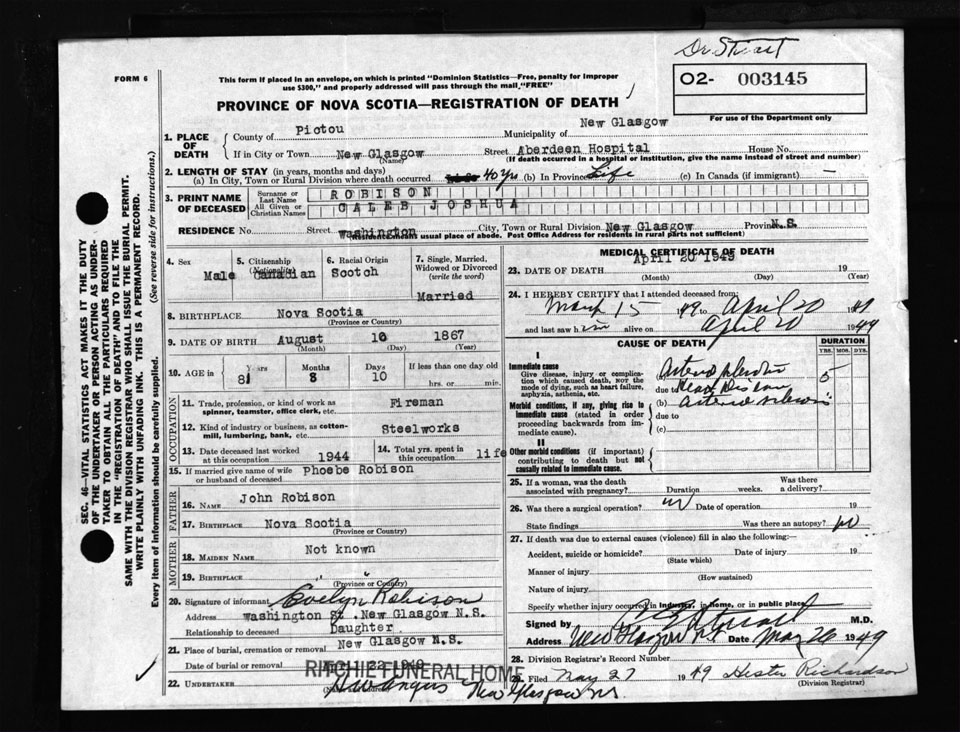 Dr Stuart
FORM 6
This form if placed in an envelope, on which is printed "Dominion Statistics—Free, penalty for improper
use $300," and properly addressed will pass through the mail "FREE"
O2- 003145
For use of the Department only
PROVINCE OF NOVA SCOTIA—REGISTRATION OF DEATH
SEC. 46—VITAL STATISTICS ACT MAKES IT THE DUTY
OF THE UNDERTAKER OR PERSON ACTING AS UNDER-
TAKER TO OBTAIN ALL THE PARTICULARS REQUIRED
IN THE "REGISTRATION OF DEATH" AND TO FILE THE
SAME WITH THE DIVISION REGISTRAR WHO SHALL ISSUE THE BURIAL PERMIT.
WRITE PLAINLY WITH UNFADING INK. THIS IS A PERMANENT RECORD.
Every item of information should be carefully supplied. (See reverse side for instructions.)
1. PLACE OF DEATH
County of Pictou Municipality of New Glasgow
If in City or Town New Glasgow Street Aberdeen Hospital House No.
(Name) (If death occurred in a hospital or institution, give the name instead of street and number)
2. LENGTH OF STAY (in years, months and days)
(a) In City, Town or Rural Division where death occurred 40 yrs (b) In Province Life (c) In Canada (if immigrant) —
3. PRINT NAME OF DECEASED
Surname or Last Name ROBISON
All Given or Christian Names CALEB JOSHUA
RESIDENCE No. Street Washington City, Town or Rural Division New Glasgow Province N.S.
Residence means usual place of abode. Post Office Address for residents in rural parts not sufficient)
4. Sex Male
5. Citizenship (Nationality) Canadian
6. Racial Origin Scotch
7. Single, Married, Widowed or Divorced (write the word) Married
8. BIRTHPLACE Nova Scotia
(Province or Country)
9. DATE OF BIRTH August 10 1867
(Month) (Day) (Year)
10. AGE in Years 81 Months 8 Days 10 If less than one day old
hrs. or min.
OCCUPATION
11. Trade, profession, or kind of work as spinner, teamster, office clerk, etc. Fireman
12. Kind of industry or business, as cotton-mill, lumbering, bank, etc. Steelworks
13. Date deceased last worked at this occupation 1944
14. Total yrs. spent in this occupation life
15. If married give name of wife or husband of deceased Phoebe Robison
FATHER
16. NAME John Robison
17. BIRTHPLACE Nova Scotia
(Province or Country)
MOTHER
18. MAIDEN NAME Not known
19. BIRTHPLACE " "
(Province or Country)
20. Signature of informant Evelyn Robison
Address Washington St. New Glasgow N.S.
Relationship to deceased Daughter
21. Place of burial, cremation or removal New Glasgow N.S.
Date of burial or removal April 22 1949
RITCHIE FUNERAL HOME
22. UNDERTAKER New Glasgow NS
MEDICAL CERTIFICATE OF DEATH
23. DATE OF DEATH April 20 1949 19
(Month) (Day) (Year)
24. I HEREBY CERTIFY that I attended deceased from:
15 1949 to April 20 1949
and last saw him alive on April 20 1949
CAUSE OF DEATH
DURATION
YRS. MOS. DYS.
I
Immediate cause
Give disease, injury or complication which caused death, NOT the mode of dying, such as heart failure, asphyxia, asthenia, etc.
(a)
due to 5
Morbid conditions, if any, giving rise to immediate cause (stated in order proceeding backwards from immediate cause).
(b)
due to
(c)
II
Other morbid conditions (if important) contributing to death but not causally related to immediate cause.
25. If a woman, was the death associated with pregnancy? Duration weeks. Was there a delivery?
26. Was there a surgical operation? no Date of operation 19
State findings Was there an autopsy? no
27. If death was due to external causes (violence) fill in also the following:—
Accident, suicide or homicide? Date of injury 19
(State which)
Manner of injury
(How sustained)
Nature of injury
Specify whether injury occurred in industry, in home, or in public place
Signed by M.D.
Address New Glasgow NS Date May 26 1949
28. Division Registrar's Record Number
29. Filed May 27 1949 Hester Richardson
(Division Registrar)